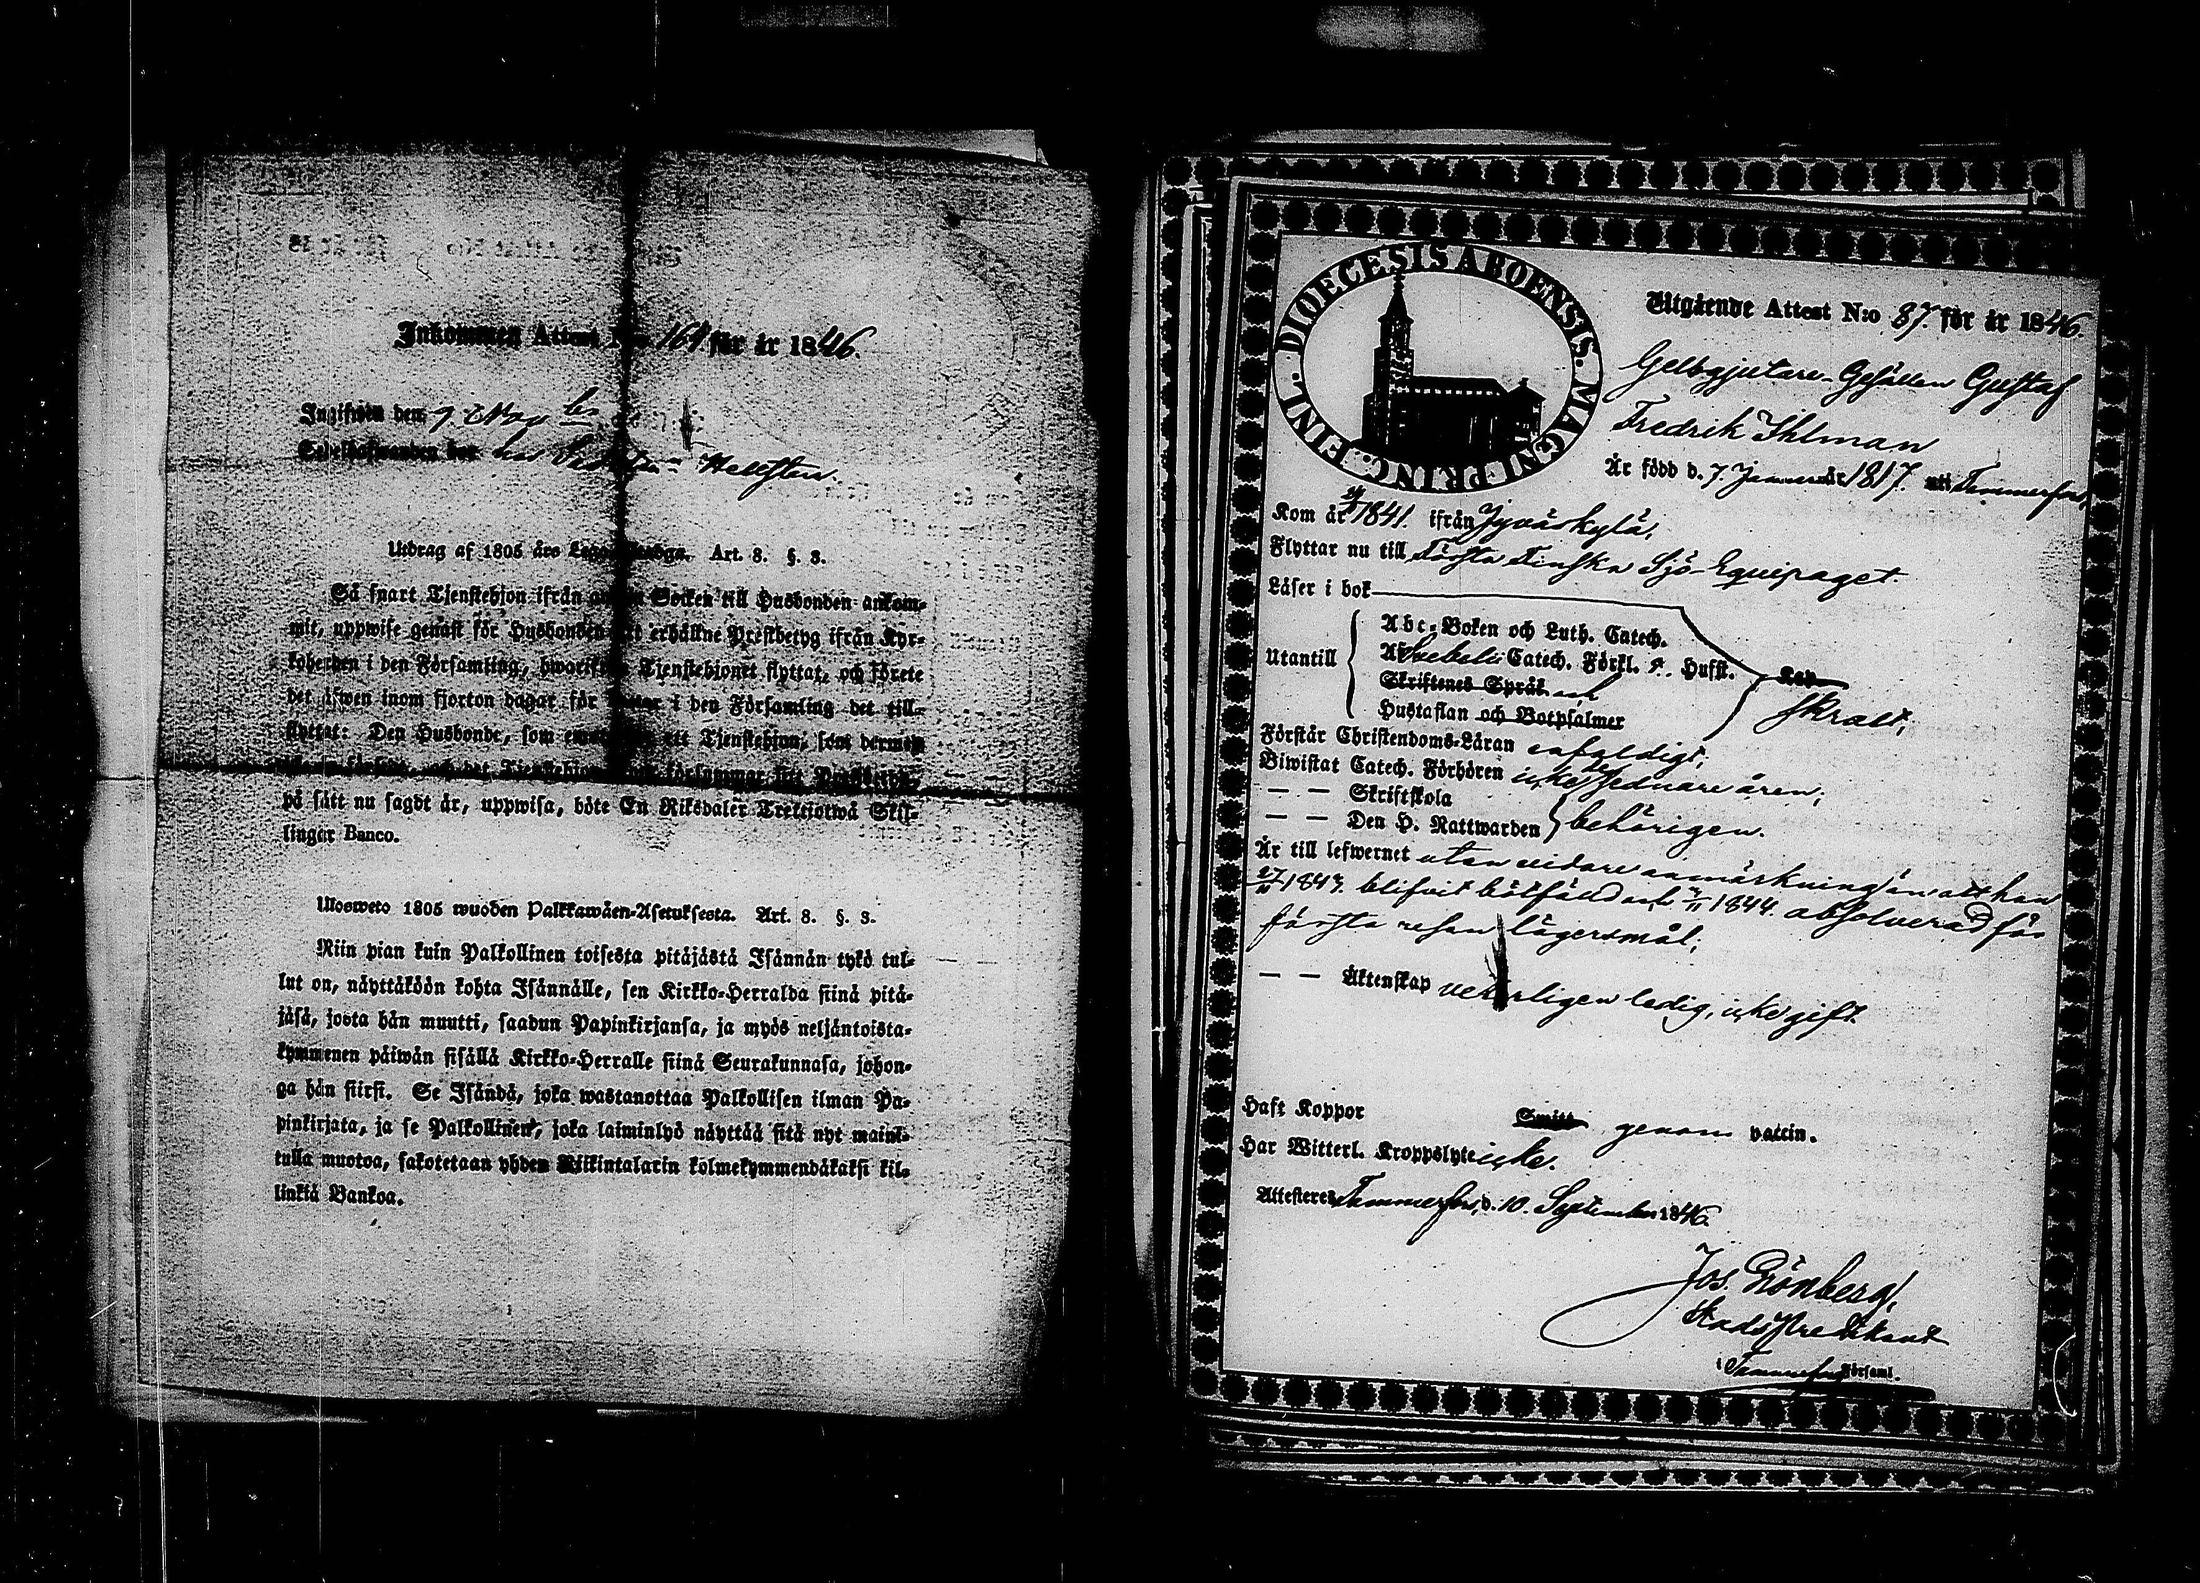 Inkommen Attest N:o 164 för år 1846.
Ingifwen den 7 Novbr
Sedelhafwanden bor hos Hellsten.
Utdrag af 1805 års Legostadga. Art. 8. §. 3.
Så snart Tjenstehjon ifrån annan Socken till Husbonden ankom-
mit, uppwise genast för Husbonden sitt erhållne Prestbetyg ifrån Kyr-
koherden i den Församling, hwarifrån Tjenstehjonet flyttat, och förete
det äfwen inom fjorton dagar för i den Församling det till-
flyttat: Den Husbonde, som ett Tjenstehjon, som
och det Tjenstehjon försummar sitt
på sätt nu sagdt är, uppwisa, böte En Riksdaler Trettiotwå Skil-
lingar Banco.
Ulosweto 1805 wuoden Palkkawäen-Asetuksesta. Art. 8. §. 3.
Niin pian kuin Palkollinen toisesta pitäjästä Isännän tykö tul-
lut on, näyttäköön kohta Isännälle, sen Kirkko-Herralda siinä pitä-
jäsä, josta hän muutti, saadun Papinkirjansa, ja myös neljäntoista-
kymmenen päiwän sisällä Kirkko-Herralle siinä Seurakunnasa, johon-
ga hän siirsi. Se Isändä, joka wastanottaa Palkollisen ilman Pa-
pinkirjata, ja se Palkollinen, joka laiminlyö näyttää sitä nyt mainit-
tulla muotoa, sakotetaan yhden Riikintalarin kolmekymmendäkaksi kil-
linkiä Bankoa.
DIOECESIS ABOENSIS. MAGNI PRINC. FINL.
Utgående Attest N:o 87. för år 1846.
Gelbgjutare-Gesällen Gustaf
Fredrik Ihlman
Är född d. 7. Januari år 1817. uti Tammerfors,
Kom år 1841. ifrån Jyväskylä,
Flyttar nu till Första Finska Sjö-Equipaget.
Läser i bok
Utantill
Abc-Boken och Luth. Catech.
Svebelii Catech. Förkl. 5. Hufst.
Skriftenes Språk och
Hustaflan och Botpsalmer
skralt,
Förstår Christendoms-Läran enfaldigt,
Biwistat Catech. Förhören icke de sednare åren,
— — Skriftskola
— — Den H. Nattwarden behörigen.
Är till lefwernet utan vidare anmärkning än att han
27/11 1843. blifvit bötfälld och 1844. absolverad för
första resan lägersmål;
— — Äktenskap veterligen ledig, icke gift.
Haft Koppor genom vaccin.
Har Witterl. Kroppslyte icke.
Attesteres Tammerfors, d. 10. September 1846.
Jos. Grönberg,
Stadspredikant
i Tammerfors Församl.